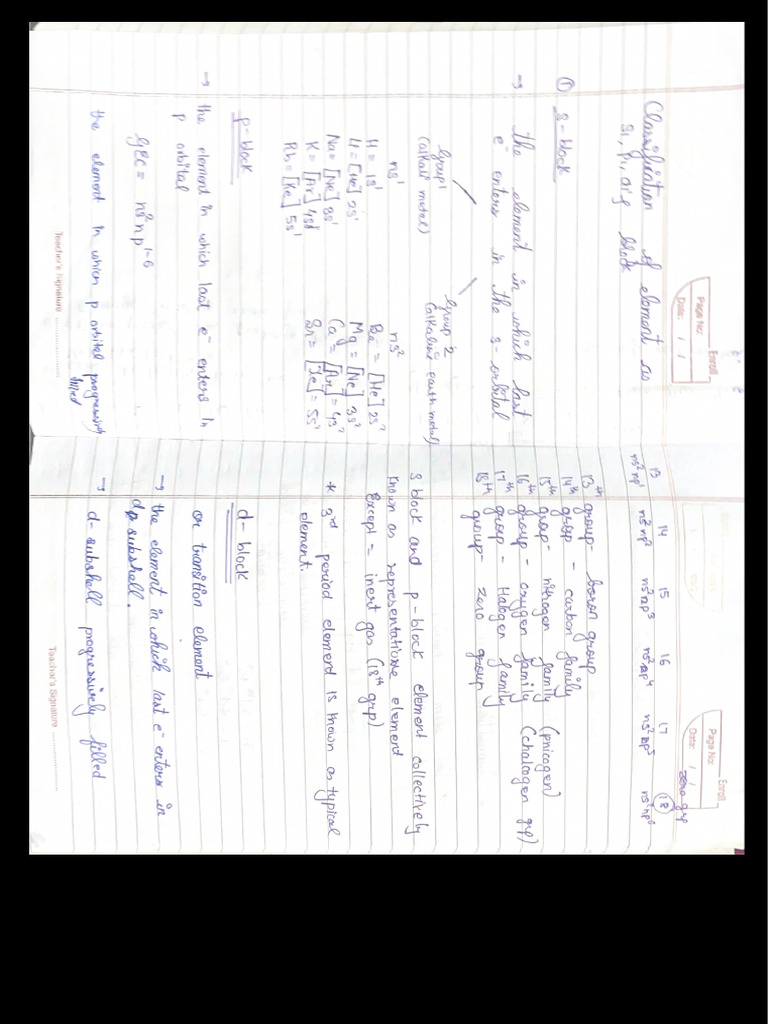 Enroll
Page No:
Date: / /
Classification of element as
s, p, d, f block
① s-block
→ the element in which last
e⁻ enters in the s-orbital
Group 1
(alkali metal)
Group 2
(alkaline earth metal)
ns¹
ns²
H = 1s¹
Li = [He] 2s¹
Na = [Ne] 3s¹
K = [Ar] 4s¹
Rb = [Kr] 5s¹
Be = [He] 2s²
Mg = [Ne] 3s²
Ca = [Ar] = 4s²
= 5s²
p-block
→ the element in which last e⁻ enters in
p orbital
GEC = ns²np¹⁻⁶
the element in which p orbital progressively
filled
Teacher's Signature ....................
Enroll
Page No:
Date: / /
zero grp
13 14 15 16 17 18
ns²np¹ ns²np² ns²np³ ns²np⁴ ns²np⁵ ns²np⁶
13th group- boron group
14th group - carbon family
15th group- nitrogen family (pnicogen)
16th group - oxygen family (chalcogen grp)
17th group - Halogen family
18th group- zero group
s block and p-block element collectively
known as representative element
Except = inert gas (18th grp)
* 3rd period element is known as typical
element.
d-block
or transition element
→ the element in which last e⁻ enters in
d subshell.
→ d-subshell progressively filled
Teacher's Signature ....................